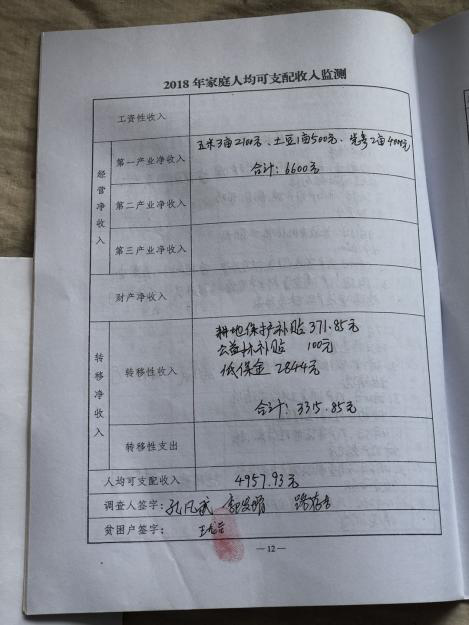 2018 年家庭人均可支配收入监测
工资性收入
经营净收入
第一产业净收入
玉米3亩2100元、土豆1亩500元、党参2亩4000元
合计：6600元
第二产业净收入
第三产业净收入
财产净收入
转移净收入
转移性收入
耕地保护补贴 371.85元
公益林补贴 100元
低保金 2844元
合计：3315.85元
转移性支出
人均可支配收入
4957.93元
调查人签字：
贫困户签字：
— 12 —